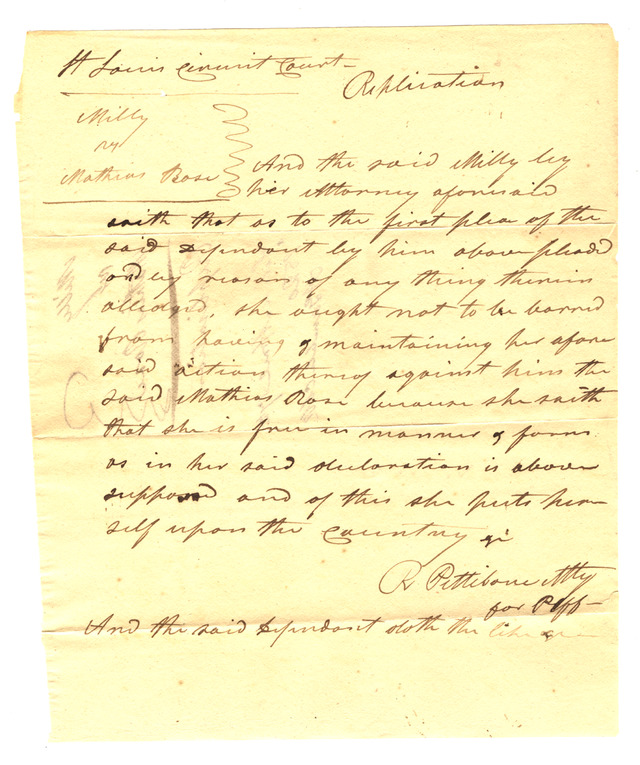 St Louis Circuit Court
Replication
Milly
vs
Mathias Rose
And the said Milly by
her Attorney aforesaid
saith that as to the first plea of the
said Defendant by him above plead
and by reason of any thing therein
alledged, she ought not to be barred
from having & maintaining her afore
said action thereof against him the
said Mathias Rose because she saith
that she is free in manner & form
as in her said declaration is above
supposed and of this she puts her
self upon the country &c
R Pettibone Atty
for Plff
And the said Defendant doth the like